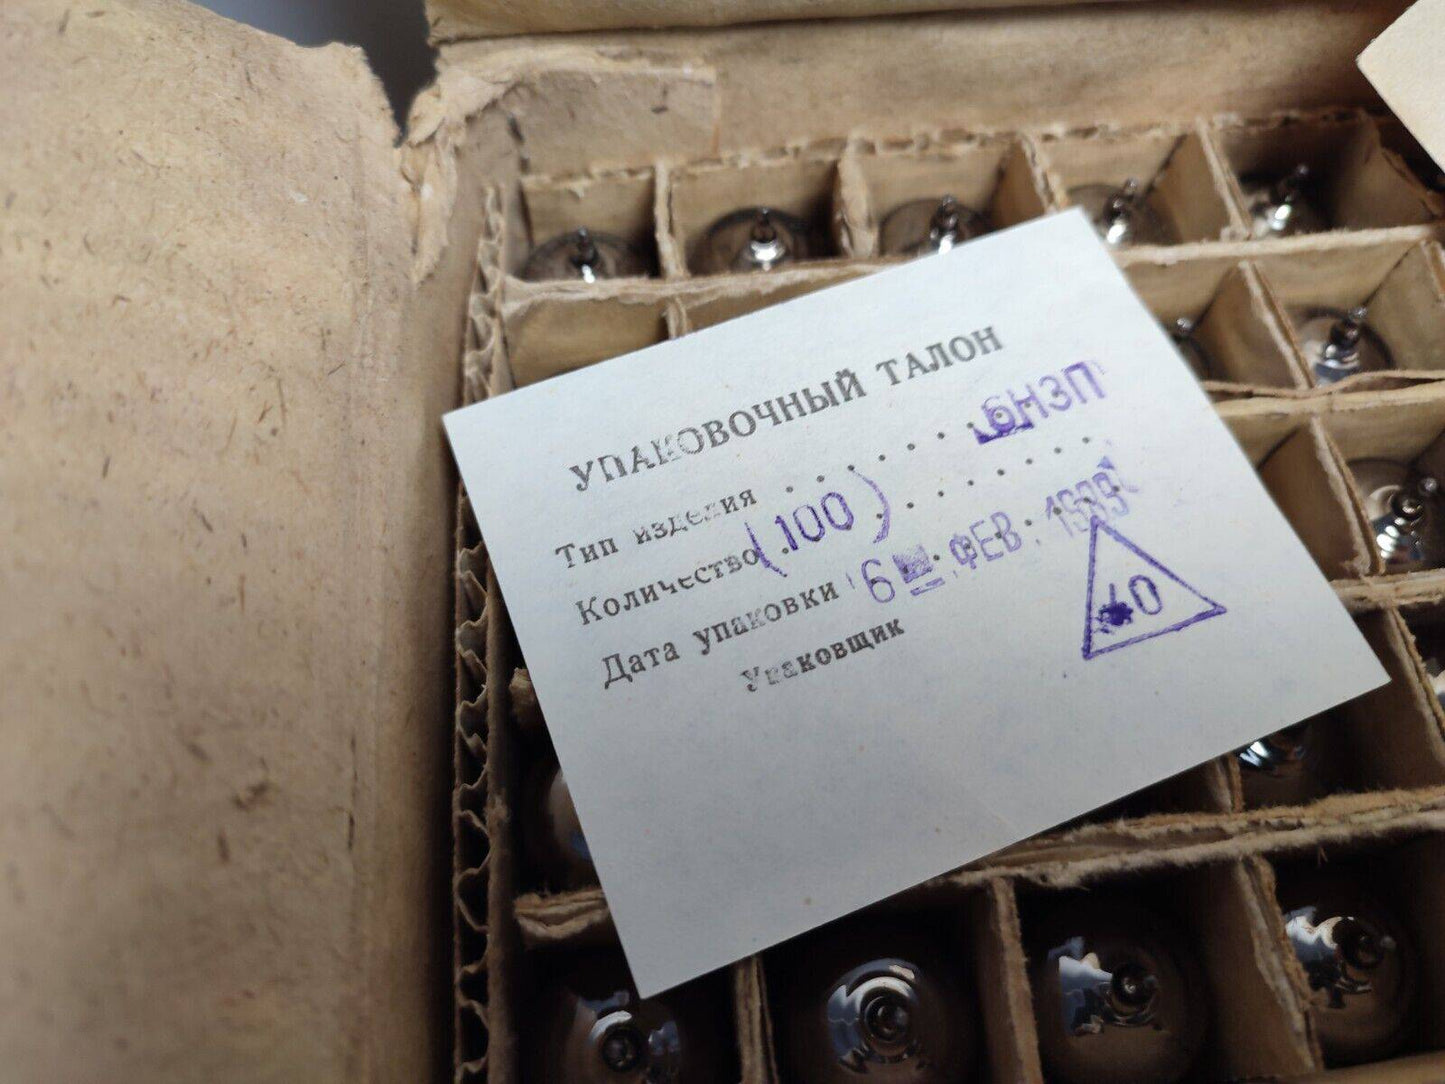 УПАКОВОЧНЫЙ ТАЛОН
Тип изделия . . . . . . . 6Н3П
Количество (100) . . . . . . .
Дата упаковки 6 ФЕВ. 1989
Упаковщик
40